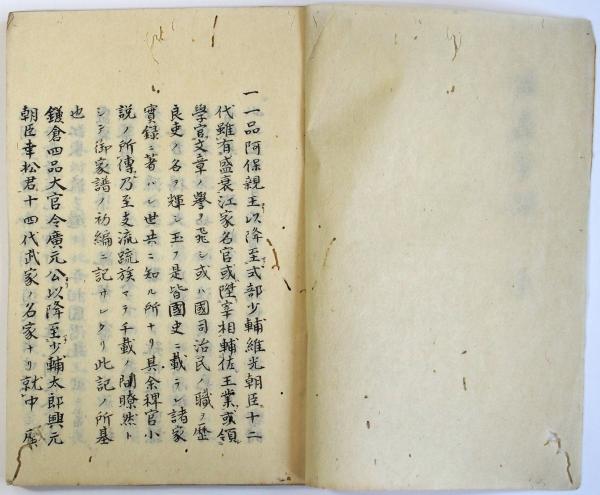 一一品阿保親王以降至式部少輔維光朝臣十二
代雖有盛衰江家名官或陞宰相輔佐王業或領
學官文章ノ譽ヲ飛シ或ハ國司治民ノ職ヲ歴
良吏ノ名ヲ輝シ玉フ是皆國史ニ載ラレ諸家
實録ニ著ハレ世共ニ知ル所ナリ具余稗官小
説ノ所傳乃至支流疏族マテ千載ノ間瞭然ト
シテ御家譜ノ初編ニ記サレタリ此記ノ所基
也
鎌倉四品大官令廣元公以降至少輔太郎興元
朝臣幸松君十四代武家ノ名家ナリ就中歴